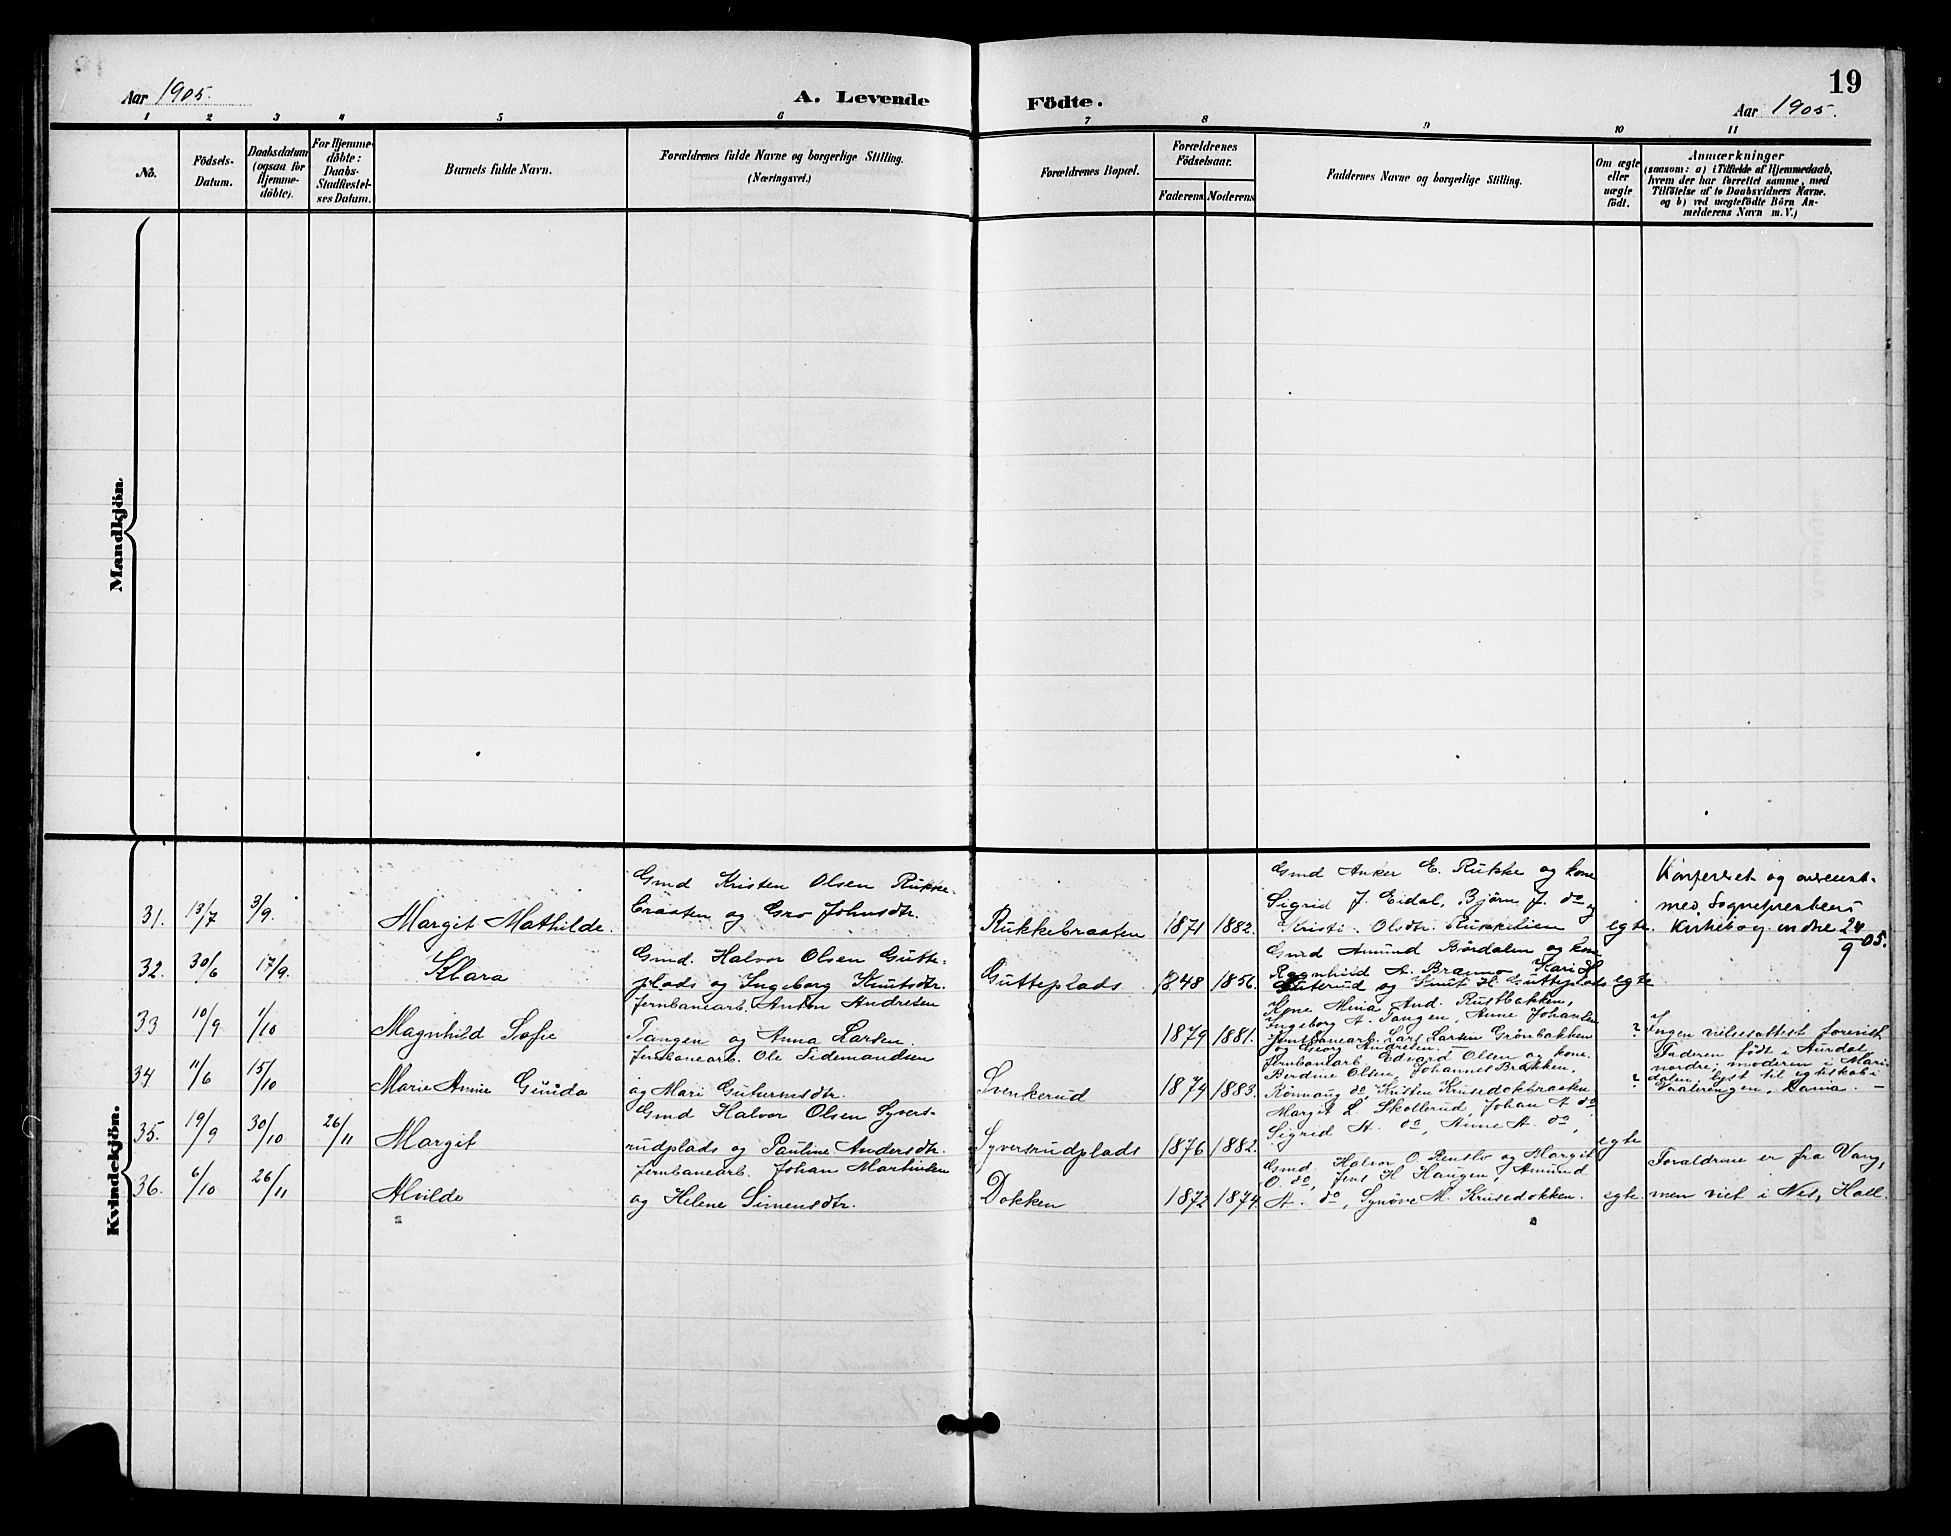 19
Aar 1905.
A. Levende Födte.
Aar 1905.
1 2 3 4 5 6 7 8 9 10 11
No.
Födsels-Datum.
Daabsdatum (ogsaa for Hjemme-döbte).
For Hjemme-döbte: Daabs-Stadfæstel-ses Datum.
Barnets fulde Navn.
Forældrenes fulde Navne og borgerlige Stilling. (Næringsvei.)
Forældrenes Bopæl.
Forældrenes Födselsaar.
Faderens. Moderens.
Faddernes Navne og borgerlige Stilling.
Om ægte eller uægte födt.
Anmærkninger
(saasom: a) i Tilfælde af Hjemmedaab,
hvem der har forrettet samme, med
Tilföielse af to Daabsvidners Navne.
og b) ved uægtefödte Börn An-
melderens Navn m. V.)
Mandkjön.
Kvindekjön.
31. 13/7 3/9. Margit Mathilde.
Gmd Kristen Olsen Rukke-
braaten og Gro Johnsdtr.
Rukkebraaten 1871 1882.
Gmd Anker E. Rukke og kone
Sigrid J. Eidal, Bjørn J. do og
Kristi Olsdtr.
egte.
Konfereret og
med Sognepræstens
Kirkebog 24/9 05.
32. 30/6 17/9. Klara
Gmd. Halvor Olsen Gutte-
plads og Ingeborg Knutsdtr.
Gutteplads 1848 1856.
Gmd Amund Børdalen og kone
Ragnhild A. Kari H.
og Knut H. Gutteplads
egte
33 10/9 1/10 Magnhild Sofie
Jernbanearb. Anton Andresen
Tangen og Anna Larsen.
1879 1881.
Kone Mina And. Rustbakken,
Ingeborg A. Tangen, Anne Johansen
Jernbanearb. Lars Larsen Grønbakken
og Georg Andresen.
?
Ingen vielsesattest forevist.
34 11/6 15/10 Marie Annie Gunda
Jernbanearb. Ole Tidemandsen
og Mari Gutormsdtr.
Svenkerud 1874 1883.
Jernbanearb Edvard Olsen og kone
Berdine Olsen, Johannes Brakken,
Rønnaug do, Kristen Krusedokbraaten
?
Faderen født i Aurdal
nordre, moderen i Mari-
dalen, lyst til egteskab i
Vaalerengen,
35. 19/9 30/10 26/11 Margit
Gmd Halvor Olsen Syvers-
rudplads og Pauline Andersdtr.
Syversrudplads 1876 1882.
Margit L. Skollerud, Johan A. do
Sigrid A. do, Anne A. do,
egte
36. 6/10 26/11 Alvilde
Jernbanearb. Johan Martinsen
og Helene Simensdtr.
Dokken 1872 1874.
Gmd. Halvor O. og Margit
O. do, Jens H. Haugen, Amund
A. do, Synøve M. Krusedokken.
egte.
Forældrene er fra Vang,
men viet i Nes, Hall.